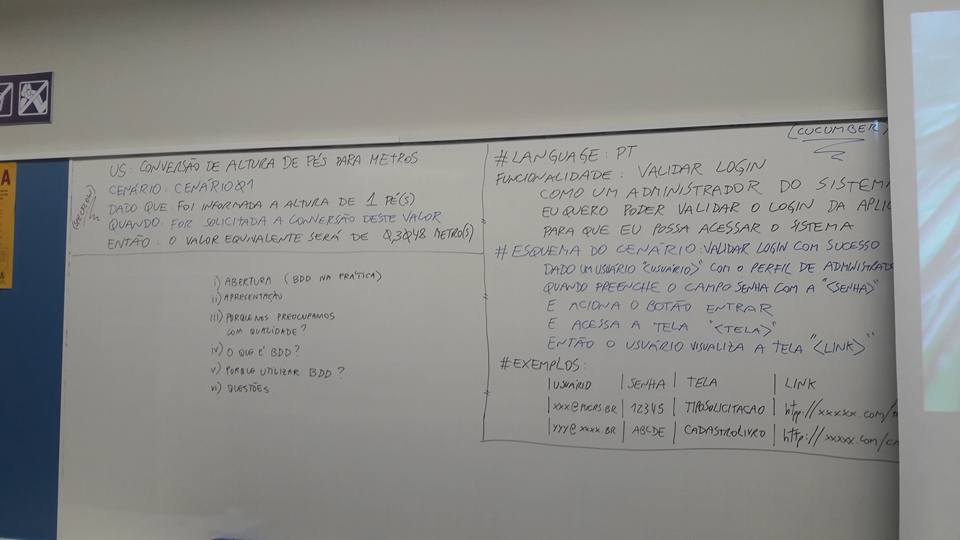 US: CONVERSÃO DE ALTURA DE PÉS PARA METROS
CENÁRIO: CENÁRIO 01
DADO QUE: FOI INFORMADA A ALTURA DE 1 PÉ(S)
QUANDO: FOR SOLICITADA A CONVERSÃO DESTE VALOR
ENTÃO: O VALOR EQUIVALENTE SERÁ DE 0,3048 METRO(S)
I) ABERTURA (BDD NA PRÁTICA)
II) APRESENTAÇÃO
III) PORQUE NOS PREOCUPAMOS
COM QUALIDADE?
IV) O QUE É BDD?
V) PORQUE UTILIZAR BDD?
VI) QUESTÕES
(CUCUMBER)
#LANGUAGE: PT
FUNCIONALIDADE: VALIDAR LOGIN
COMO UM ADMINISTRADOR DO SISTEMA
EU QUERO PODER VALIDAR O LOGIN DA APLIC
PARA QUE EU POSSA ACESSAR O SISTEMA
#ESQUEMA DO CENÁRIO: VALIDAR LOGIN COM SUCESSO
DADO UM USUÁRIO "<USUÁRIO>" COM O PERFIL DE ADMINISTRAD
QUANDO PREENCHE O CAMPO SENHA COM A "<SENHA>"
E ACIONA O BOTÃO ENTRAR
E ACESSA A TELA "<TELA>"
ENTÃO O USUÁRIO VISUALIZA A TELA "<LINK>"
#EXEMPLOS:
|USUÁRIO |SENHA |TELA |LINK
|XXX@PUCRS.BR |12345 |TIPOSOLICITACAO |http://xxxxx.com/
|YYY@XXXX.BR |ABCDE |CADASTROLIVRO |http://xxxxx.com/c